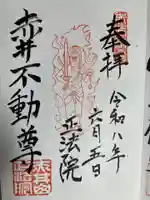 奉拝
令和八年
六月五日
正法院
赤井不動尊